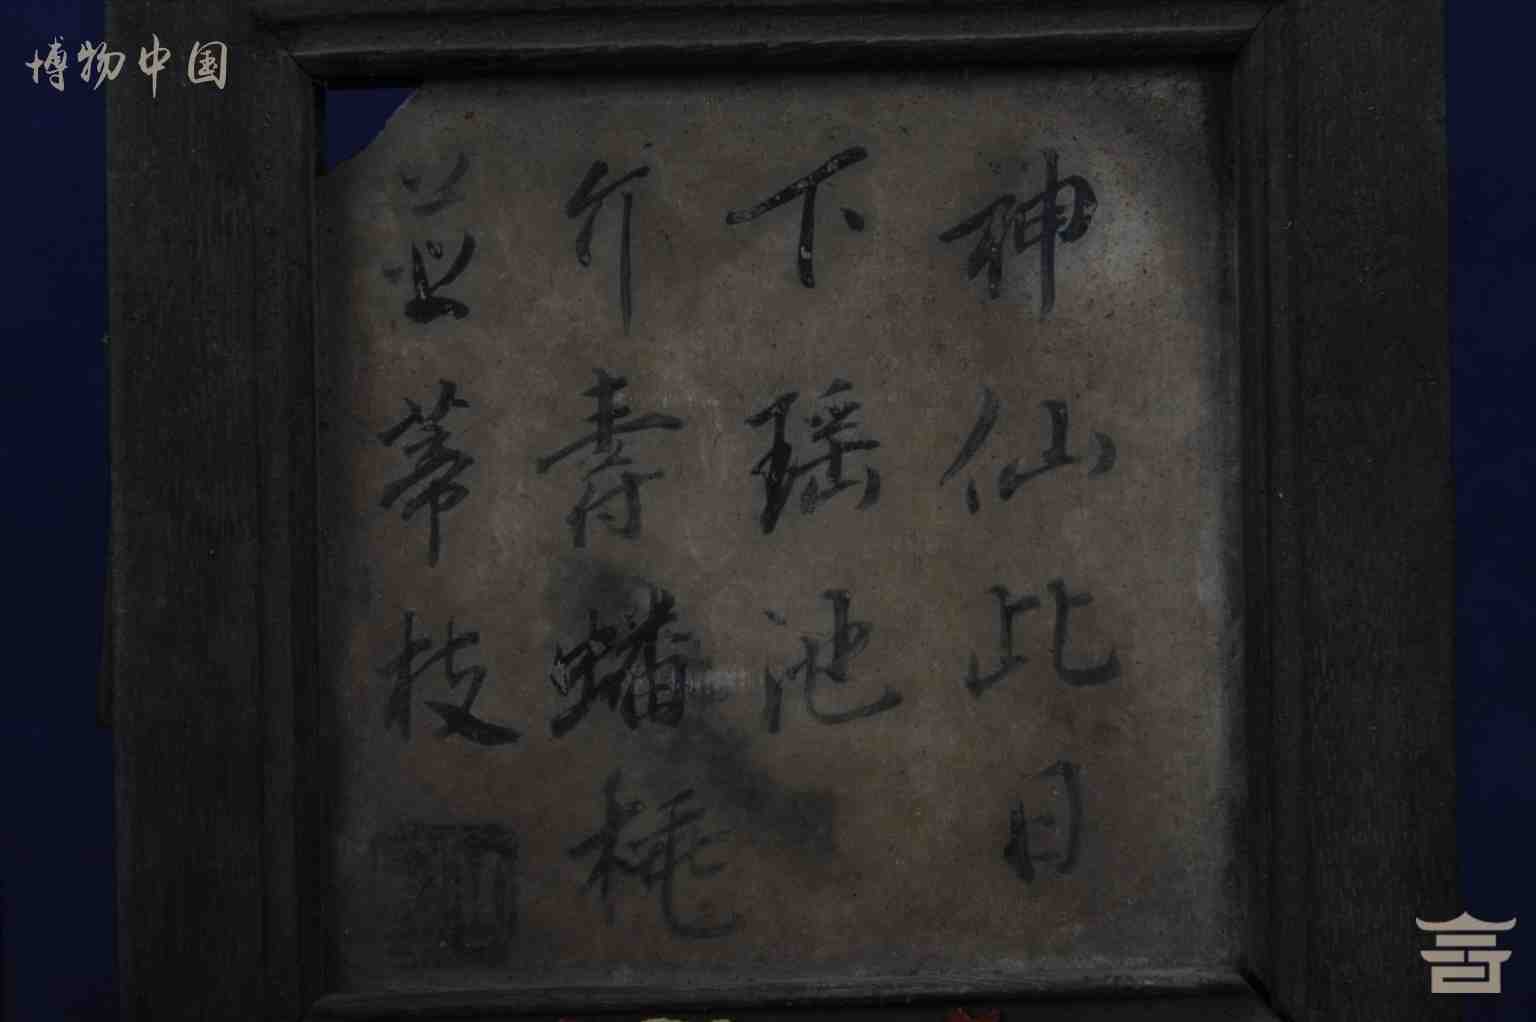 博物中国
神仙此日
下瑶池
介壽蟠桃
並蒂枝